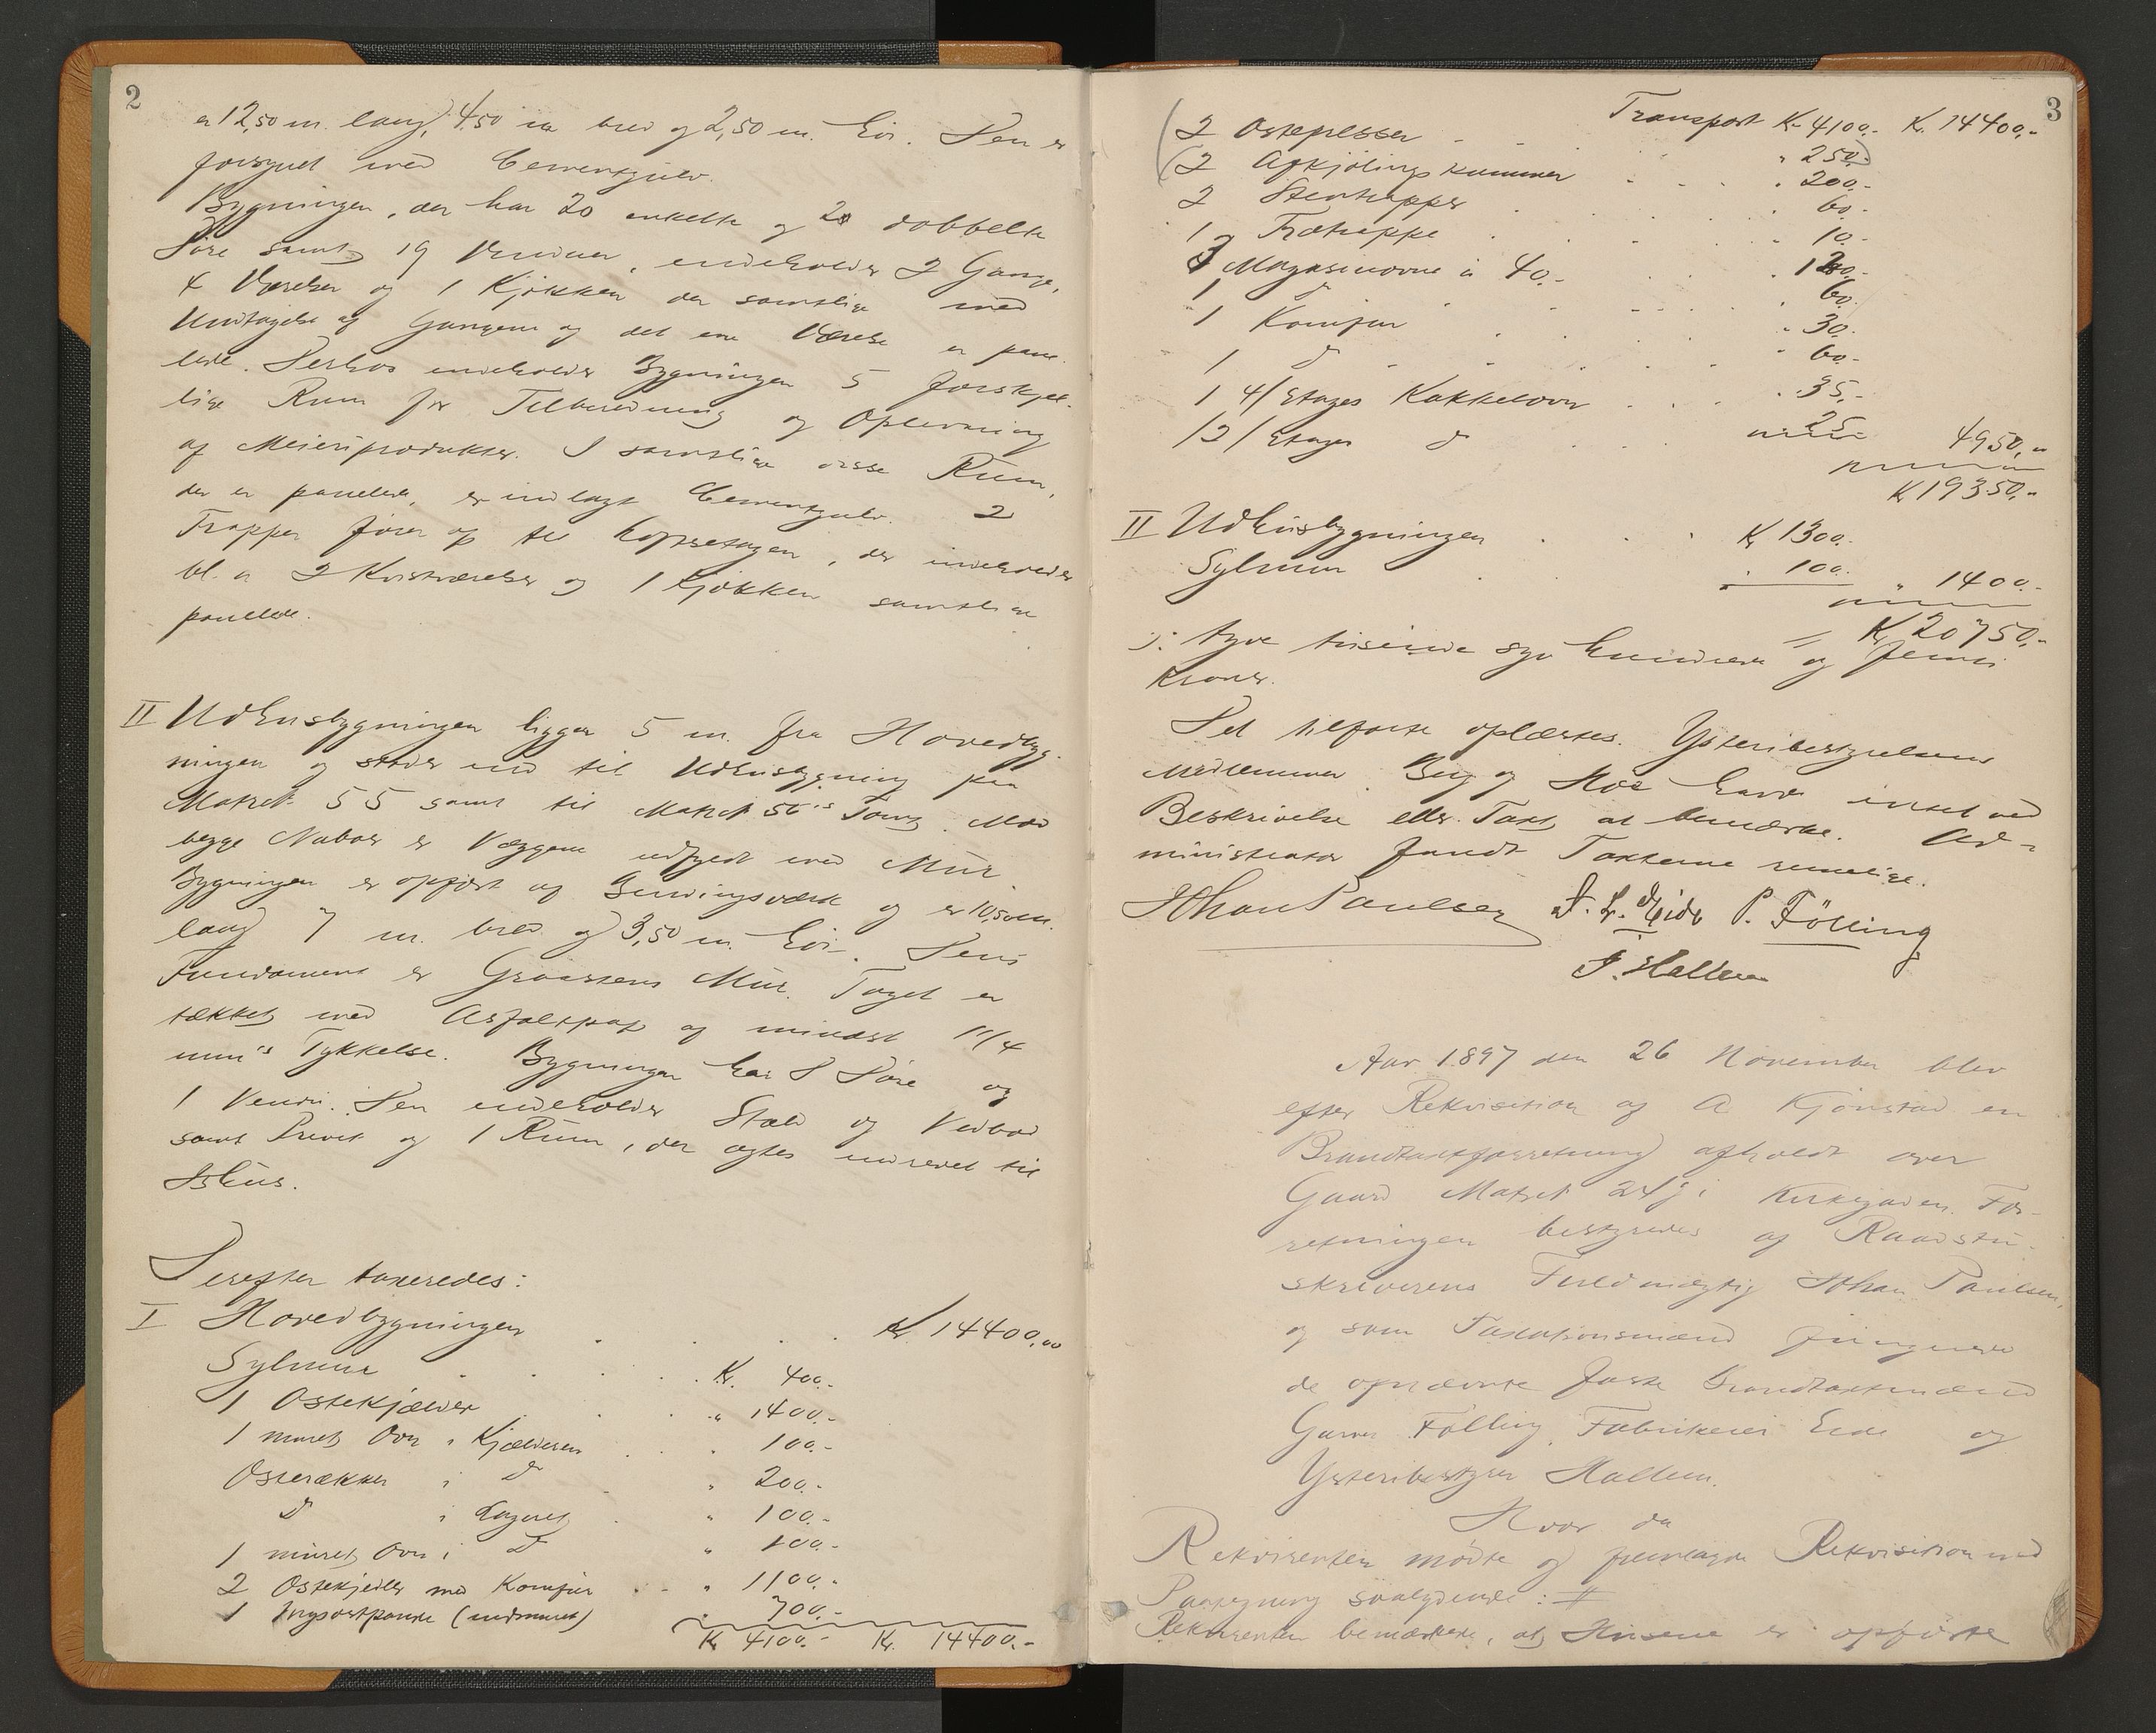 2
er 12,50 m. lang, 4,50 m bred og 2,50 m. høi. Den er
forsynet med Cementgulv.
Bygningen, der har 20 enkelte og 20 dobbelte
Døre samt 19 Vinduer, indeholder 2 Gange,
4 Værelser og 1 Kjøkken der samtlige med
Undtagelse af Gangene og det ene Værelse er pane-
lede. Derhos indeholder Bygningen 5 forskjel-
lige Rum for Tilberedning og Opbevaring
af Meieriprodukter. I samtlige disse Rum,
der er panelede, er indlagt Cementgulv. 2
Trapper fører op til Loftsetagen, der indeholder
bl. a 2 Kvistværelser og 1 Kjøkken samtlige
panelede.
II Udhusbygningen ligger 5 m. fra Hovedbyg-
ningen og støder ind til Udhusbygning paa
Matrik. 55 samt til Matrik 56's Tomt. Mod
begge Naboer er Væggene udfyldt med Mur.
Bygningen er opført af Bindingsværk og er 10,50 m.
lang 7 m. bred og 3,50 m. høi. Dens
Fundament er Graastens Mur. Taget er
tækket med Asfaltpap af mindst 1 1/4
mm's Tykkelse. Bygningen har 8 Døre og
1 Vindu. Den indeholder Stald og Vedbod
samt Privet og 1 Rum, der agtes indredet til
Ishus.
Derefter taxeredes:
I Hovedbygningen . . . . Kr. 14400,00
Sylmur . . . . Kr. 400.-
1 Ostekjælder . . . " 1400.-
1 muret Ovn i Kjælderen . . " 100.-
Osterækker i Do . " 200.-
Do i Lageret . " 100.-
1 muret Ovn i Do " 100.-
2 Ostekjedler med Komfur . . " 1100.-
1 Mysostpande (indmuret) " 700.-
Kr 4100.- Kr. 14400.-
3
Transport Kr 4100.- Kr. 14400.-
2 Ostepresser . . . " 250.-
2 Afkjølingskummer . . . " 200.-
2 Stentrapper . . . " 60.-
1 Trætrappe . . . " 10.-
3 Magasinovne a 40.- . . " 120.-
1 Do . . . " 60.
1 Komfur . . . " 30.
1 Do . . . " 60.-
1 4/ Etages Kakkelovn . . . " 35.-
1 2/ Etages Do . . . 25.- 4950,00
Kr 19350.-
II Udhusbygningen . . . Kr 1300.-
Sylmur . . " 100.- " 1400.-
Kr 20750.-
ɔ: tyve tusinde syv hundrede og femti
Kroner.
Det tilførte oplæstes. Ysteribestyrelsens
Medlemmer Berg og Moe havde intet ved
Beskrivelse eller Taxt at bemærke. Ad-
ministrator fandt Taxterne rimelige.
Johan Paulsen P. Følling
J. Hallem
Aar 1897 den 26 November blev
efter Rekvisition af A Kjønstad en
Brandtaxtforretning afholdt over
Gaard Matrik 24j i Kirkegaden. For-
retningen bestyredes af Raadstu-
skriverens Fuldmægtig Johan Paulsen,
og som Taxationsmænd fungerede
de opnævnte faste Brandtaxtmænd
Garver Følling, Fabrikeier Eide og
Ysteribestyrer Hallem.
Hvor da
Rekvirenten mødte og fremlagde Rekvisition med
Paategning saalydende: #
Rekvirenten bemærkede, at Husene er opførte